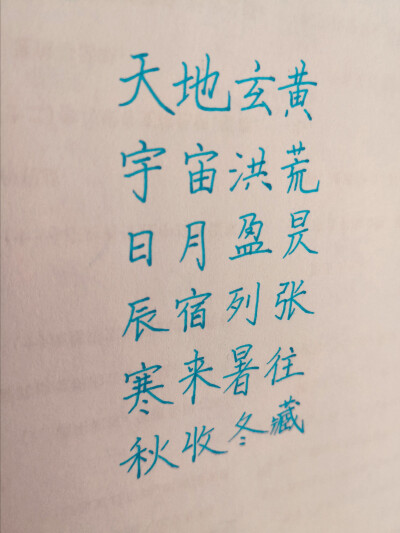 天地玄黄
宇宙洪荒
日月盈昃
辰宿列张
寒来暑往
秋收冬藏